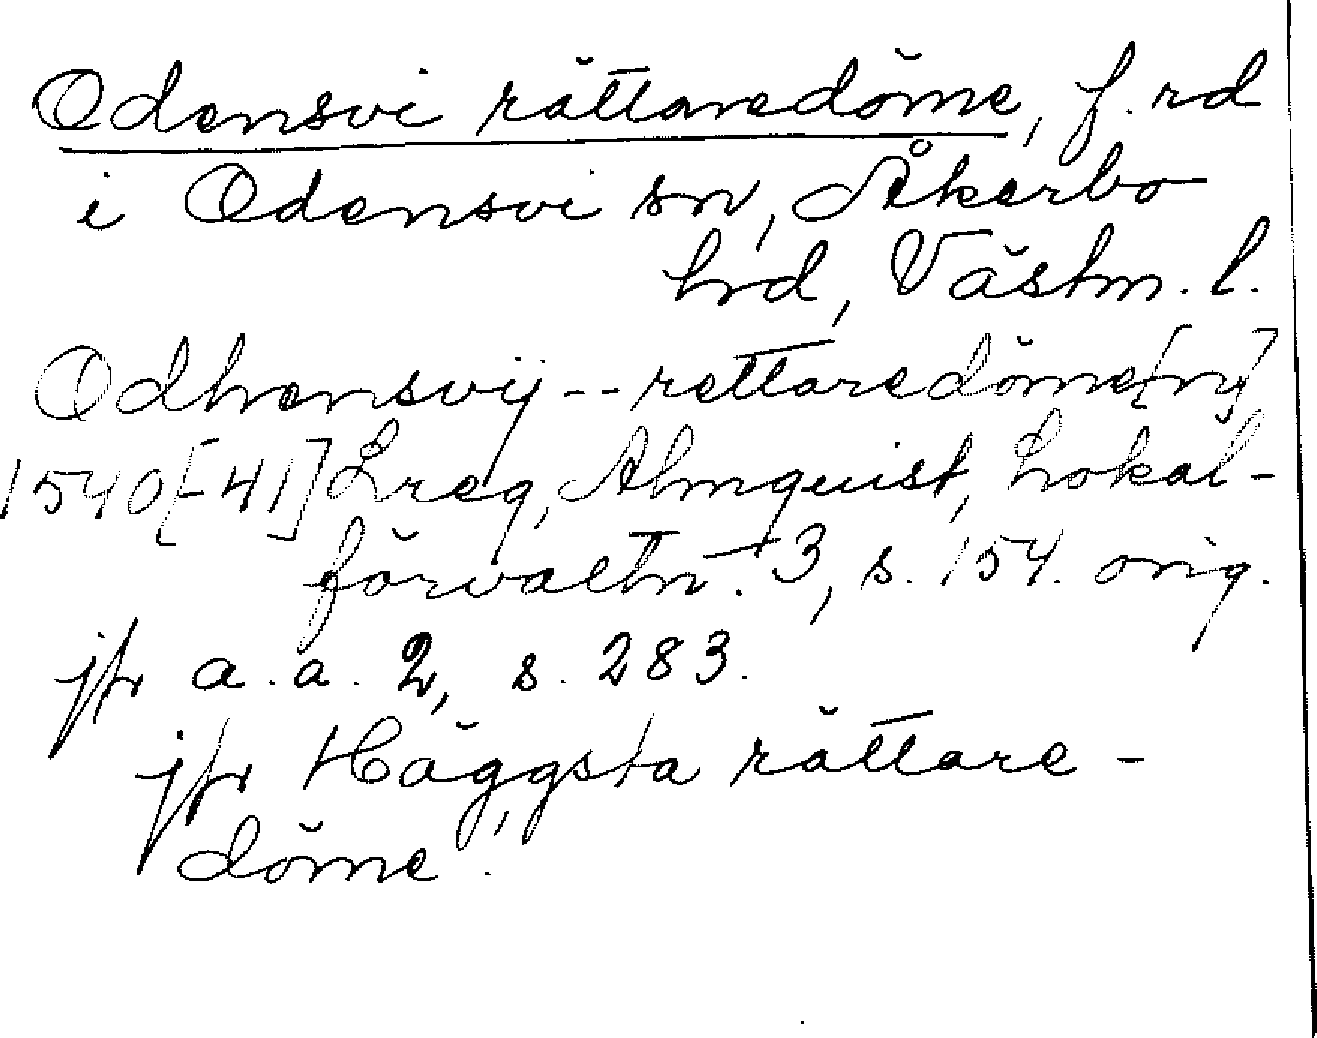 Odensvi rättaredöme, f. rd
i Odensvi sn, Åkerbo
hrd, Västm. l.
Odhensvij -- rettaredöme[ny]
1540[-41] Lreg, Almquist, Lokal-
förvaltn. 3, s. 154. orig.
jfr a.a. 2, s. 283.
jfr Häggsta rättare-
döme.